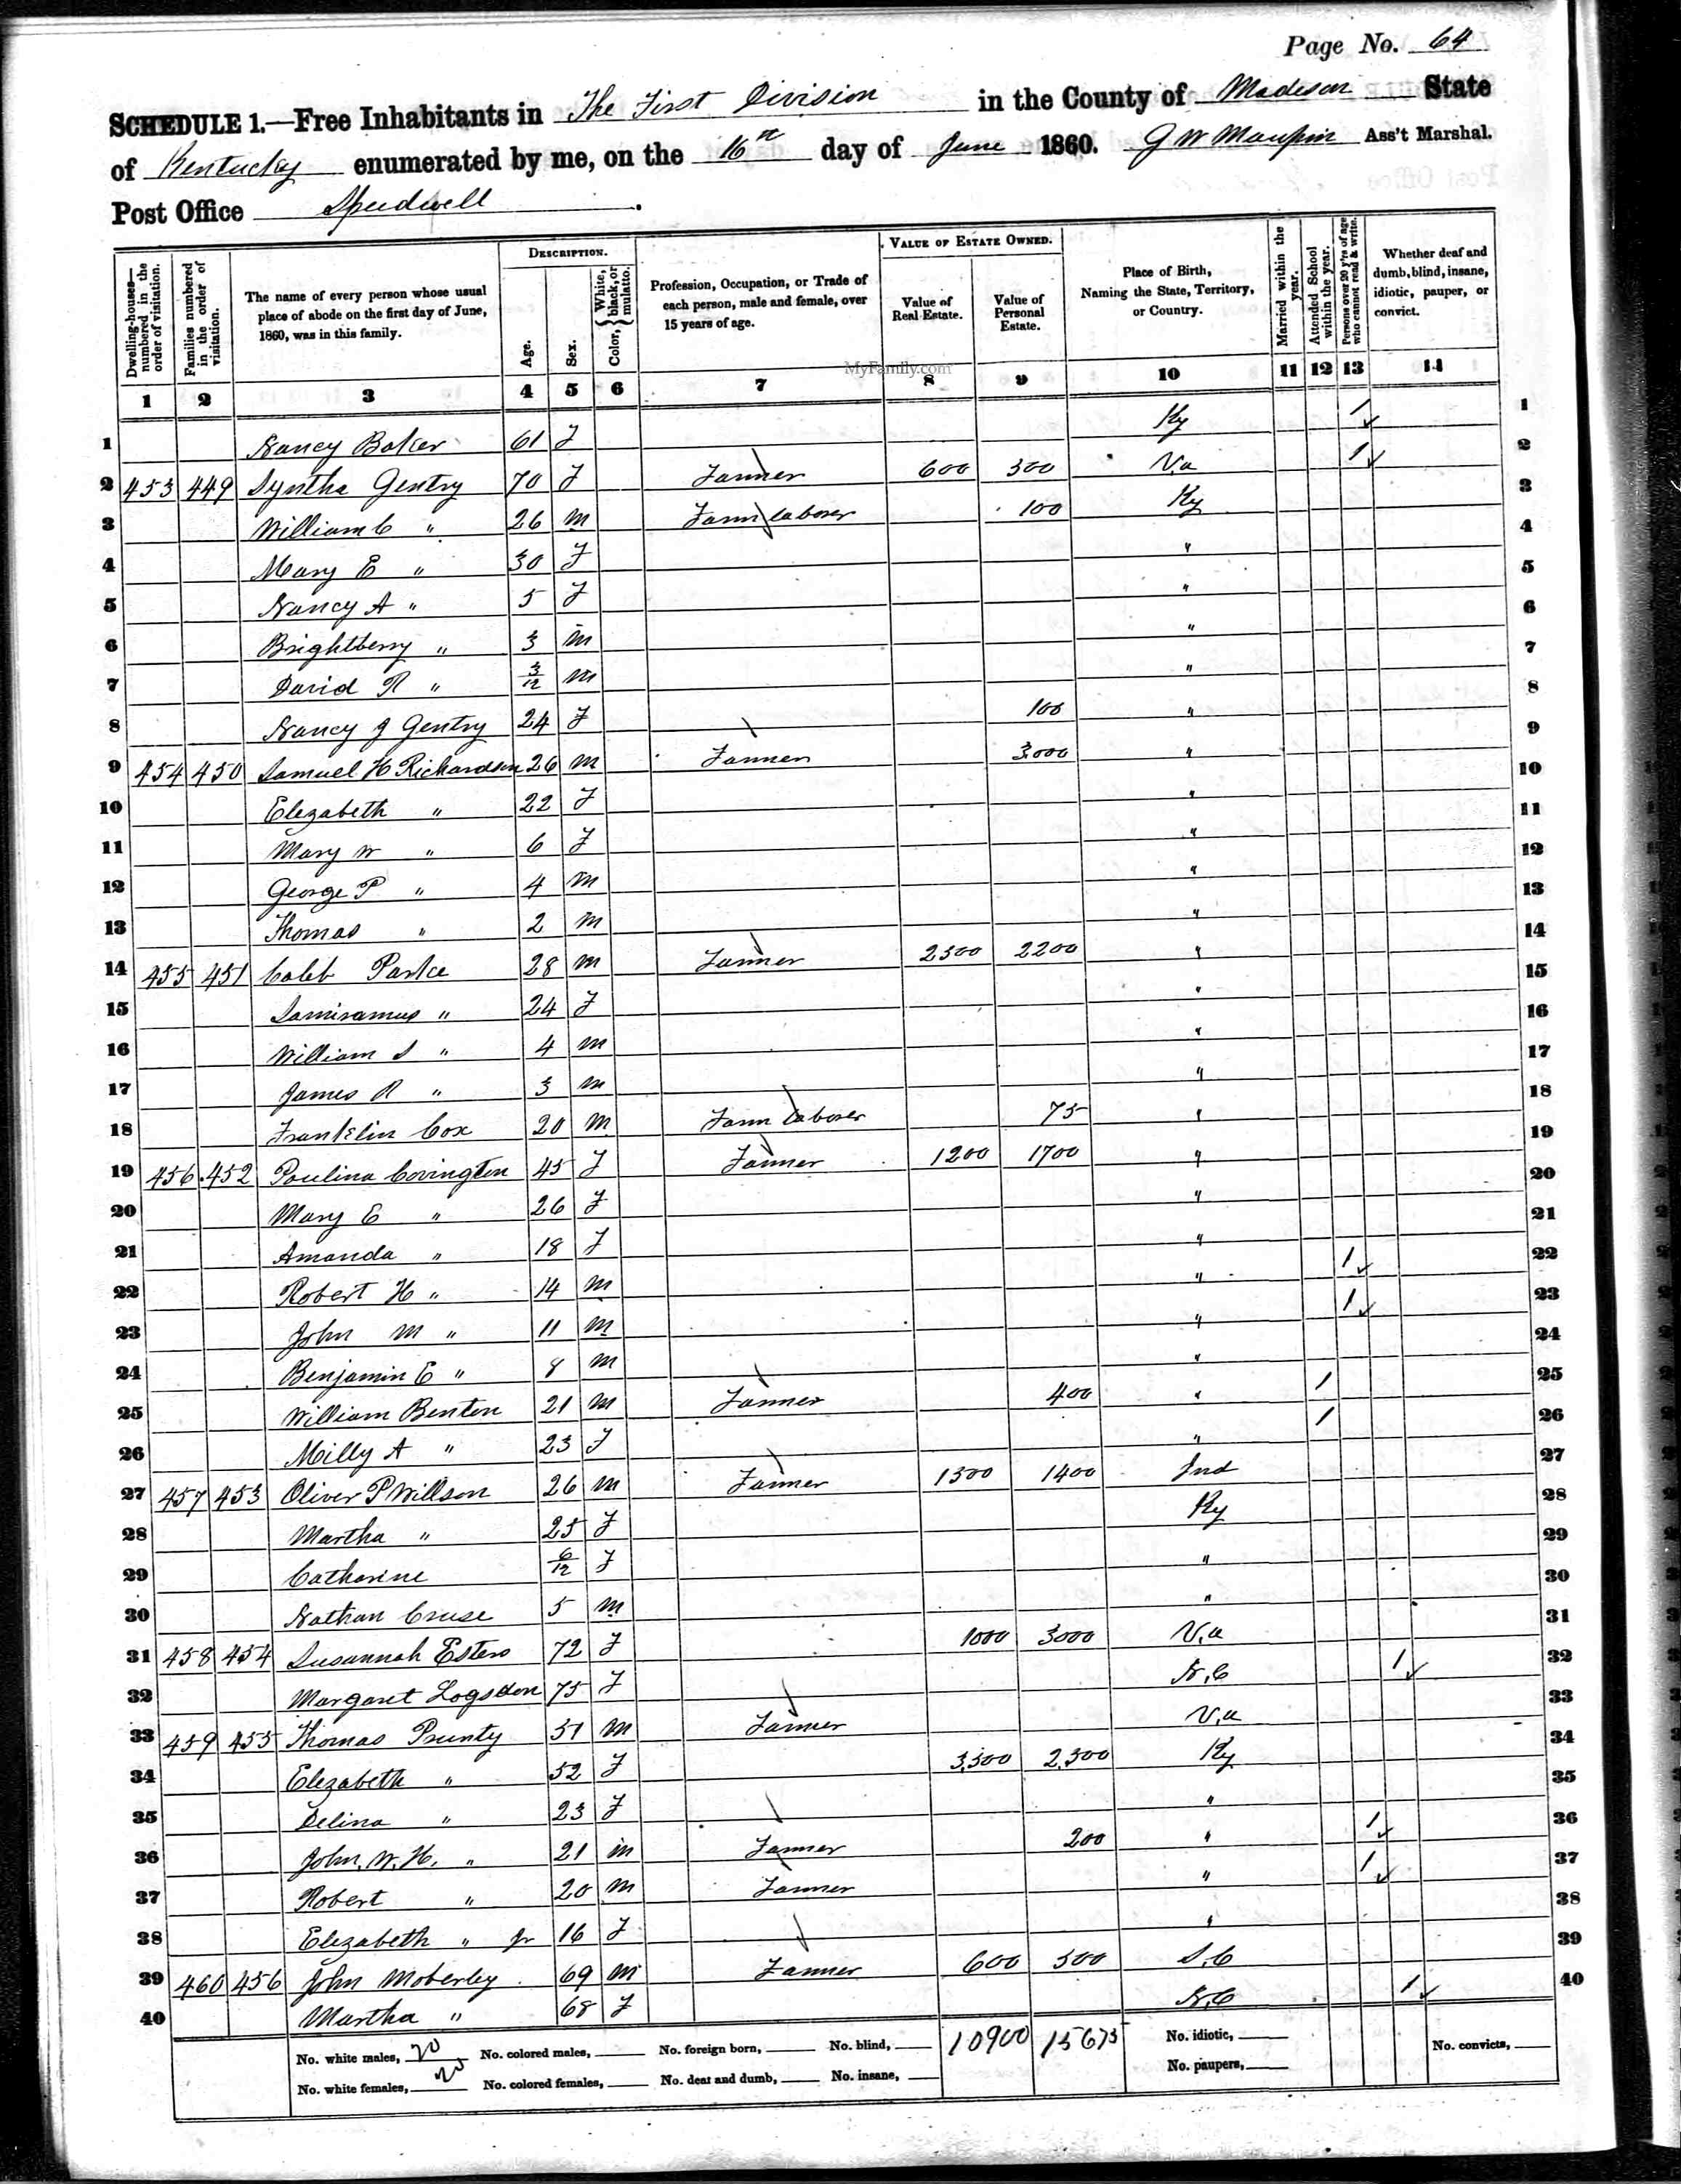 Page No. 64
SCHEDULE 1.—Free Inhabitants in The First Division in the County of Madison State
of Kentucky enumerated by me, on the 16th day of June 1860. G W Maupin Ass't Marshal.
Post Office Speedwell.
Dwelling-houses—numbered in the order of visitation.
Families numbered in the order of visitation.
The name of every person whose usual place of abode on the first day of June, 1860, was in this family.
DESCRIPTION.
Age.
Sex.
Color, { White, black, or mulatto.
Profession, Occupation, or Trade of each person, male and female, over 15 years of age.
VALUE OF ESTATE OWNED.
Value of Real Estate.
Value of Personal Estate.
Place of Birth, Naming the State, Territory, or Country.
Married within the year.
Attended School within the year.
Persons over 20 y'rs of age who cannot read & write.
Whether deaf and dumb, blind, insane, idiotic, pauper, or convict.
MyFamily.com
1 2 3 4 5 6 7 8 9 10 11 12 13 14
1 Nancy Baker 61 F Ky 1 1
2 453 449 Syntha Gentry 70 F Farmer 600 300 Va 1 2
3 William C " 26 m Farm laborer 100 Ky 3
4 Mary E " 30 F " 4
5 Nancy A " 5 F " 5
6 Brightberry " 3 m " 6
7 David R " 3/12 m " 7
8 Nancy J Gentry 24 F 100 " 8
9 454 450 Samuel H Richardson 26 m Farmer 3000 " 9
10 Elezabeth " 22 F " 10
11 Mary W " 6 F " 11
12 George P " 4 m " 12
13 Thomas " 2 m " 13
14 455 451 Caleb Parke 28 m Farmer 2500 2200 " 14
15 Samiramus " 24 F " 15
16 William S " 4 m " 16
17 James R " 3 m " 17
18 Franklin Cox 20 m Farm laborer 75 " 18
19 456 452 Paulina Covington 45 F Farmer 1200 1700 " 19
20 Mary E " 26 F " 20
21 Amanda " 18 F " 21
22 Robert H " 14 m " 1 22
23 John M " 11 m " 1 23
24 Benjamin E " 8 m " 24
25 William Benton 21 m Farmer 400 " 1 25
26 Milly A " 23 F " 1 26
27 457 453 Oliver P Willson 26 m Farmer 1500 1400 Ind 27
28 Martha " 25 F Ky 28
29 Catharine 6/12 F " 29
30 Nathan Cruse 5 m " 30
31 458 454 Susannah Esters 72 F 1000 3000 Va 31
32 Margaret Logsdon 75 F N.C 1 32
33 459 455 Thomas Prunty 51 m Farmer Va 33
34 Elezabeth " 52 F 3,500 2,500 Ky 34
35 Delina " 23 F " 35
36 John. W. H. " 21 m Farmer 200 " 1 36
37 Robert " 20 m Farmer " 1 37
38 Elezabeth " Jr 16 F " 38
39 460 456 John Moberley 69 m Farmer 600 300 S.C 39
40 Martha " 68 F N.C 1 40
No. white males, 20 No. colored males, No. foreign born, No. blind, 10900 15675 No. idiotic, No. convicts,
No. white females, 20 No. colored females, No. deaf and dumb, No. insane, No. paupers,